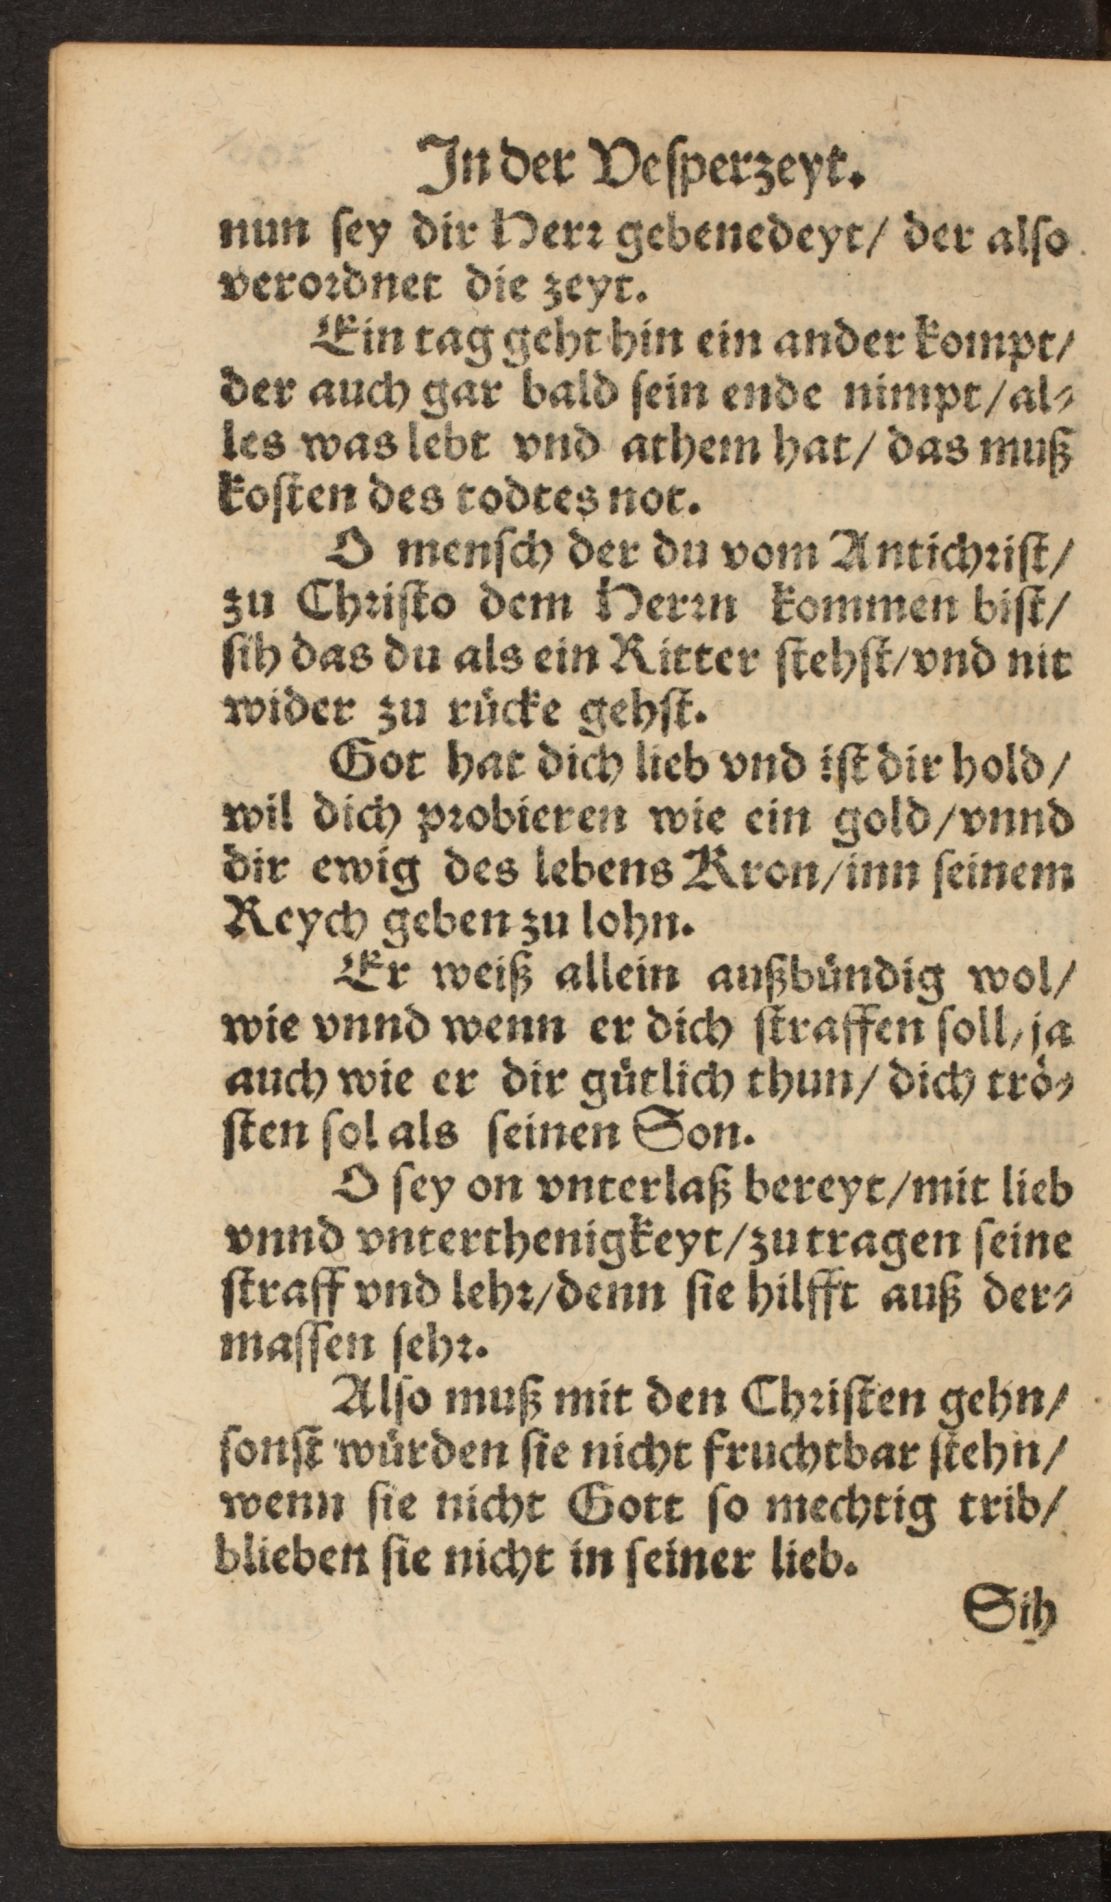 In der Veſperzeyt.
nun ſey dir Herꝛ gebenedeyt/ der alſo
veroꝛdnet die zeyt.
Ein tag geht hin ein ander kompt/
der auch gar bald ſein ende nimpt/al⸗
les was lebt vnd athem hat/ das muß
koſten des todtes not.
O menſch der du vom Antichꝛiſt/
zu Chꝛiſto dem Herꝛn kommen biſt/
ſih das du als ein Ritter ſtehſt/vnd nit
wider zu rücke gehſt.
Got hat dich lieb vnd iſt dir hold/
wil dich pꝛobieren wie ein gold/vnnd
dir ewig des lebens Kron/inn ſeinem
Reych geben zu lohn.
Er weiß allein außbündig wol/
wie vnnd wenn er dich ſtraffen ſoll/ja
auch wie er dir gütlich thun/ dich trö⸗
ſten ſol als ſeinen Son.
O ſey on vnterlaß bereyt/mit lieb
vnnd vnterthenigkeyt/zu tragen ſeine
ſtraff vnd lehꝛ/denn ſie hilfft auß der⸗
maſſen ſehꝛ.
Alſo muß mit den Chꝛiſten gehn/
ſonſt würden ſie nicht fruchtbar ſtehn/
wenn ſie nicht Gott ſo mechtig trib/
blieben ſie nicht in ſeiner lieb.
Sih